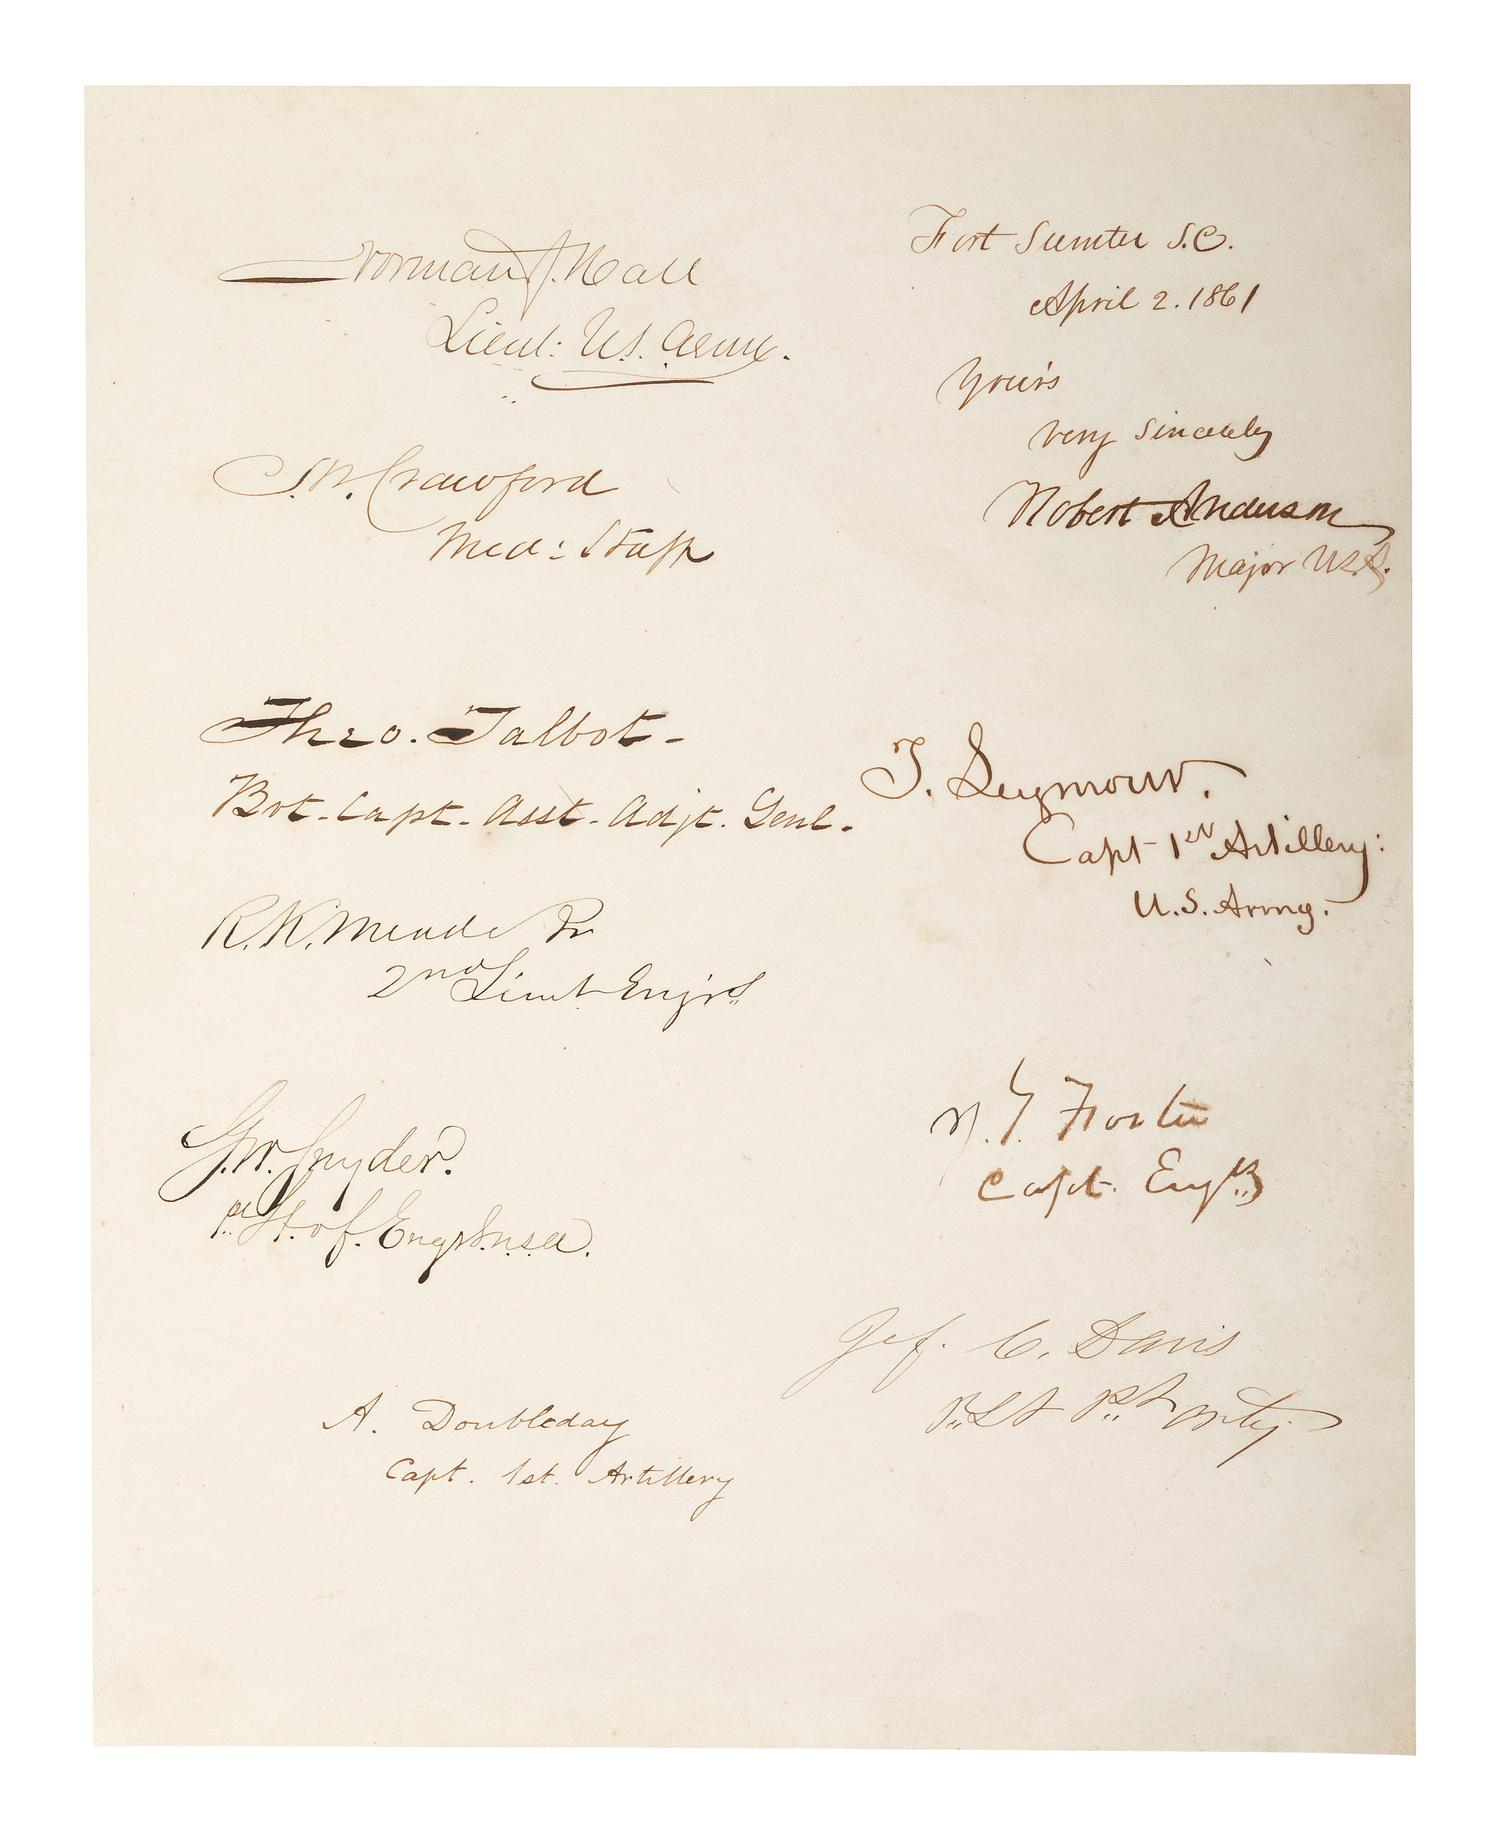 Norman J. Hall
Lieut: U.S. Army.
S.W. Crawford
Med: Staff
Theo. Talbot-
Bvt. Capt. Asst. Adjt. Genl.
R.K. Meade Jr
2nd Lieut Engrs
G.W. Snyder.
1st Lt. of Engrs U.S.A.
A. Doubleday
Capt. 1st. Artillery
Fort Sumter S.C.
April 2. 1861
Yours
very sincerely
Robert Anderson
Major U.S.A.
T. Seymour.
Capt 1st Artillery:
U.S. Army.
J. G. Foster
Capt. Engrs
Jef. C. Davis
1st Lt 1st Arty